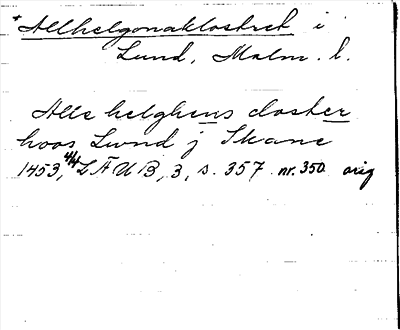 *Allhelgonaklostret i
Lund, Malm. l.
Alle helghens closter
hoos Lund j Skane
1453, 4/4 LÄUB, 3, s. 357 nr. 350 orig